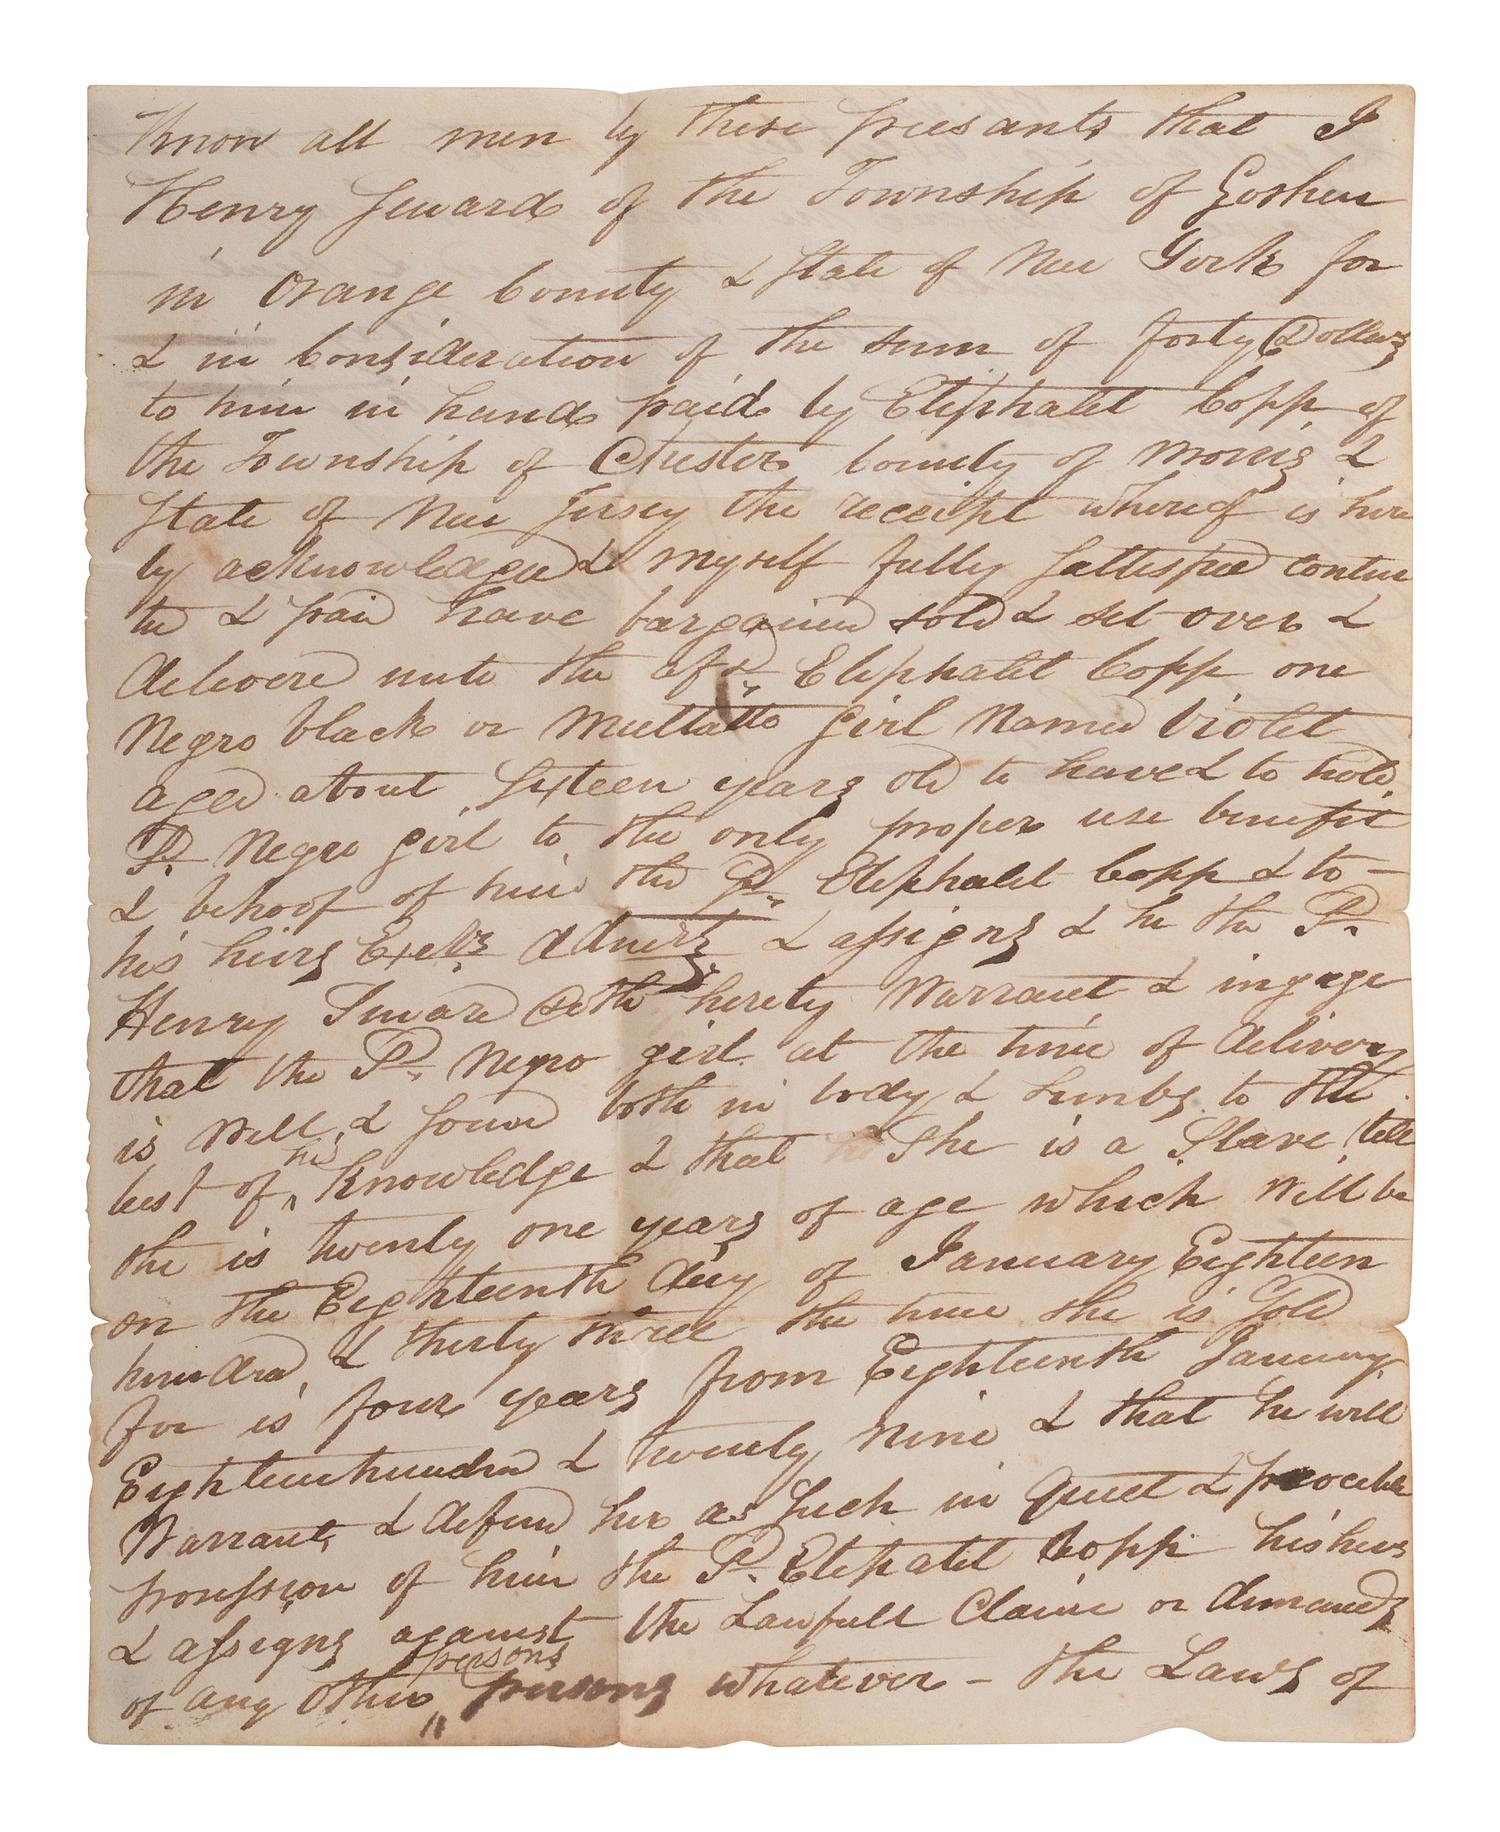 Know all men by these presants that I
Henry Seward of the Township of Goshen
in Orange County & State of New York for
& in Consideration of the sum of forty Dollars
to him in hand paid by Eliphalet Copp of
the Township of Chester County of Morris &
State of New Jersey the receipt whereof is here
by acknowledged & myself fully sattisfied conten
ted & paid have bargained sold & set over &
delivered unto the afsd Eliphalet Copp one
Negro black or Mullatto Girl Named Violet
aged about Sixteen years old to have & to hold
sd. Negro girl to the only proper use benefit
& behoof of him the sd. Eliphalet Copp & to -
his heirs Exets. & assigns & he the sd.
Henry Seward doth hereby Warrant & ingage
that the sd. Negro girl at the time of delivery
is Well & sound both in body & limbs to the
best of his knowledge & that She is a Slave till
she is twenty one years of age which Will be
on the Eighteenth day of January Eighteen
hundred & thirty three the time she is Sold
for is four years from Eighteenth January
Eighteenhundred & twenty nine & that he will
Warrant & defend her as such in Quiet &
possession of him the sd. Eliphalet Copp his heirs
& assigns against the Lawfull Claim or demands
of any other persons persons whatever - the Laws of